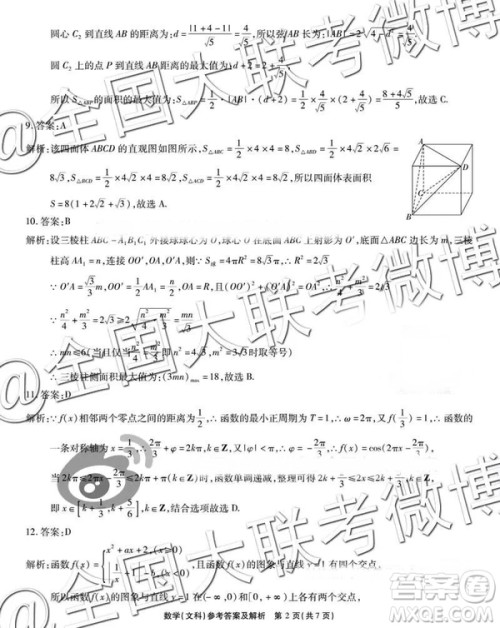 圆心 C₂ 到直线 AB 的距离为: d = |1+4-1|/√5 = 4/√5, 所以弦 AB 长为: |AB|
圆 C₂ 上的点 P 到直线 AB 距离的最大值为 d+2 = 2+4/√5,
所以 S△ABP 的面积的最大值为: S△ABP = 1/2 · |AB| · (d+2) = 1/2 × 4/√5 × (2+4/√5) = (8+4√5)/5, 故选 C.
9. 答案: A
解析: 该四面体 ABCD 的直观图如图所示, S△ABC = 1/2 × 4 × 4 = 8, S△ABD = 1/2 × 4√2 × 2√6 =
8√3, S△ACD = 1/2 × 4√2 × 4 = 8√2, 所以四面体表面积
S = 8(1+2√2+√3), 故选 A.
A
D
C
B
10. 答案: B
解析: 设三棱柱 ABC-A₁B₁C₁ 外接球球心为 O, 球心 O 在底面 ABC 上射影为 O′, 底面△ABC 边长为 m, 三棱
柱高 AA₁ = n, 连接 OO′, OA, O′A, 则∵ S球 = 4πR² = 8√3π, ∴ R² = 2√3.
∵ O′A = √3/3 m, OO′ = AA₁/2 = n/2, OA = R, 且 (OO′)² + (O′A)² = OA²
∴ n²/4 + m²/3 = 2√3 ≥ 2√(n²/4 · m²/3) = mn/√3
∴ mn ≤ 6 (当且仅当 n²/4 = m²/3 即 n² = 4√3, m² = 3√3 时取等号)
∴ 三棱柱侧面积最大为: (3mn)max = 18, 故选 B.
11. 答案: D
解析: ∵ f(x) 相邻两个零点之间的距离为 1/2, ∴ 函数的最小正周期为 T = 1, ∴ ω = 2π, 又 f(1/3) = -1, ∴ 函数的
一条对称轴为 x = 1/3, ∴ 2π/3 + φ = 2kπ, k∈Z, 又|φ| < π, ∴ φ = -2π/3, ∴ f(x) = cos(2πx - 2π/3).
当 2kπ ≤ 2πx - 2π/3 ≤ π + 2kπ, k∈Z 时, 函数单调递减, 整理可得 2k + 2/3 ≤ 2x ≤ 2k + 5/3, k∈Z,
即 x∈[k+1/3, k+5/6], k∈Z, 结合选项故选 D.
12. 答案: D
解析: 函数 f(x) = { x²+ax+2, 且函数的图象与直线 y=1 有四个
所以函数 f(x) 的图象与直线 y = 1 在 上各有两个交点,
数学(文科)参考答案及解析 第 2 页(共 7 页)
@全国大联考微博
@全国大联考微博
@全国大联考微博